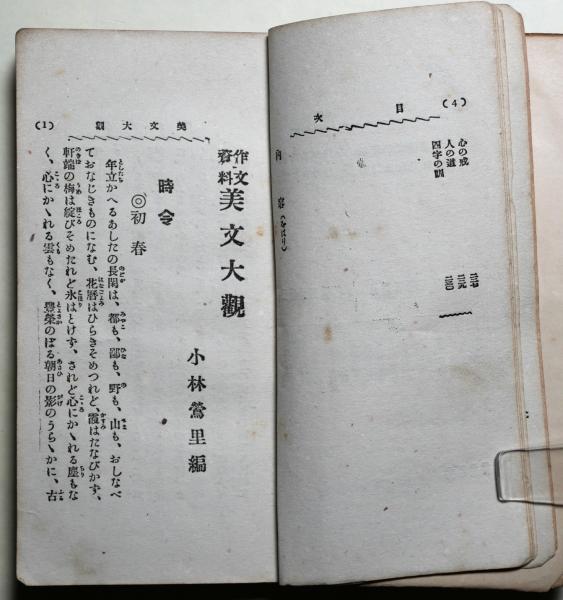 (4)
目次
心の戒
人の道
四字の訓
内容(をはり)
(1)
美文大觀
作文資料 美文大觀
小林鶯里編
時令
◎初春
年立かへるあしたの長閑は、都も、鄙も、野も、山も、おしなべ
ておなじきものになむ、花暦はひらきそめつれど、霞はたなびかず、
軒端の梅は綻びそめたれど氷はとけず、されど心にかゝれる塵もな
く、心にかゝれる雲もなく、豐榮のぼる朝日の影のうらゝかに、古